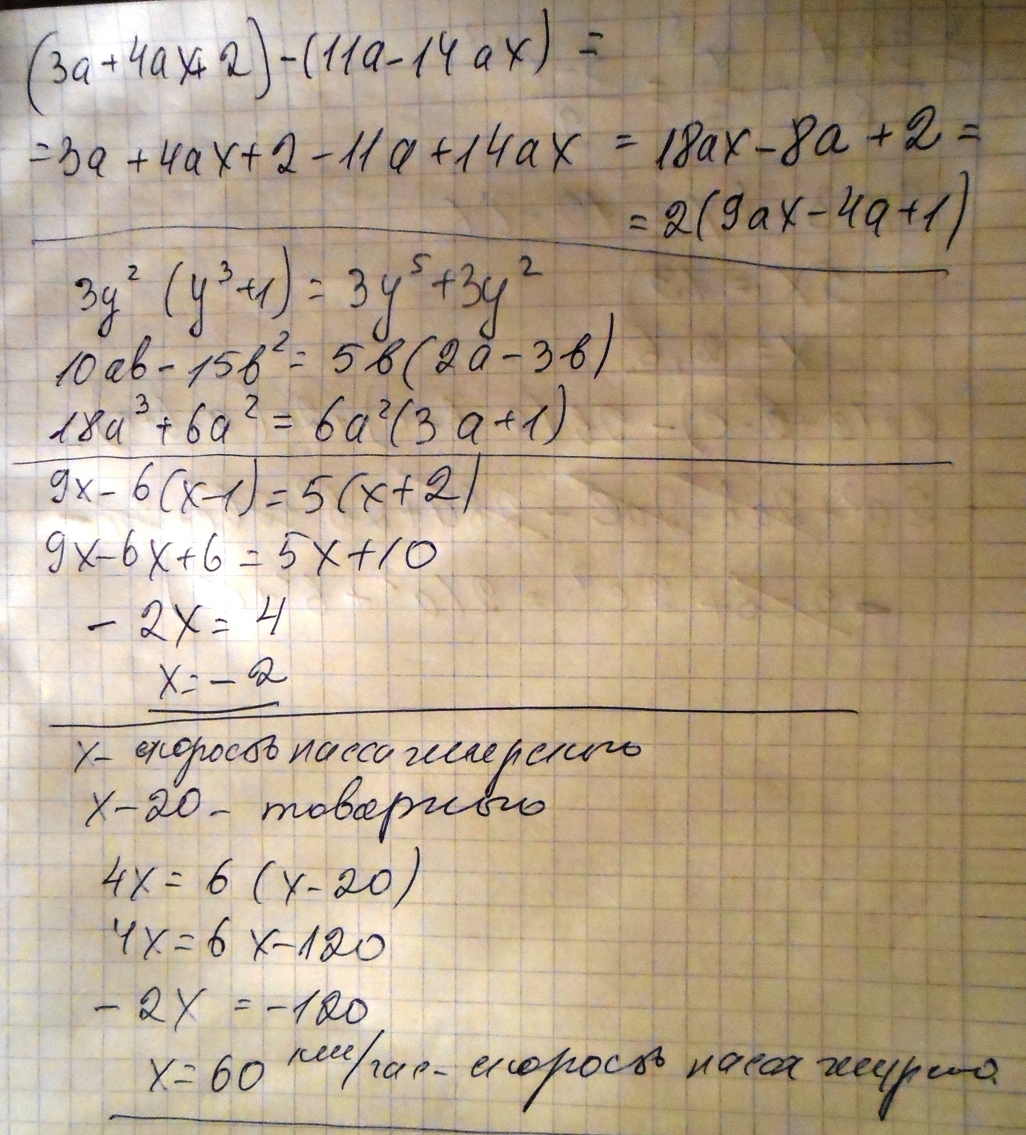 (3a+4ax+2)-(11a-14ax) =
=3a+4ax+2-11a+14ax = 18ax-8a+2=
=2(9ax-4a+1)
3y² (y³+1) = 3y⁵+3y²
10ab-15b²= 5b(2a-3b)
18a³+6a² = 6a²(3a+1)
9x-6(x-1)=5(x+2)
9x-6x+6=5x+10
-2x=4
x=-2
x- скорость пассажирского
x-20- товарного
4x=6(x-20)
4x=6x-120
-2x=-120
x=60 км/час- скорость